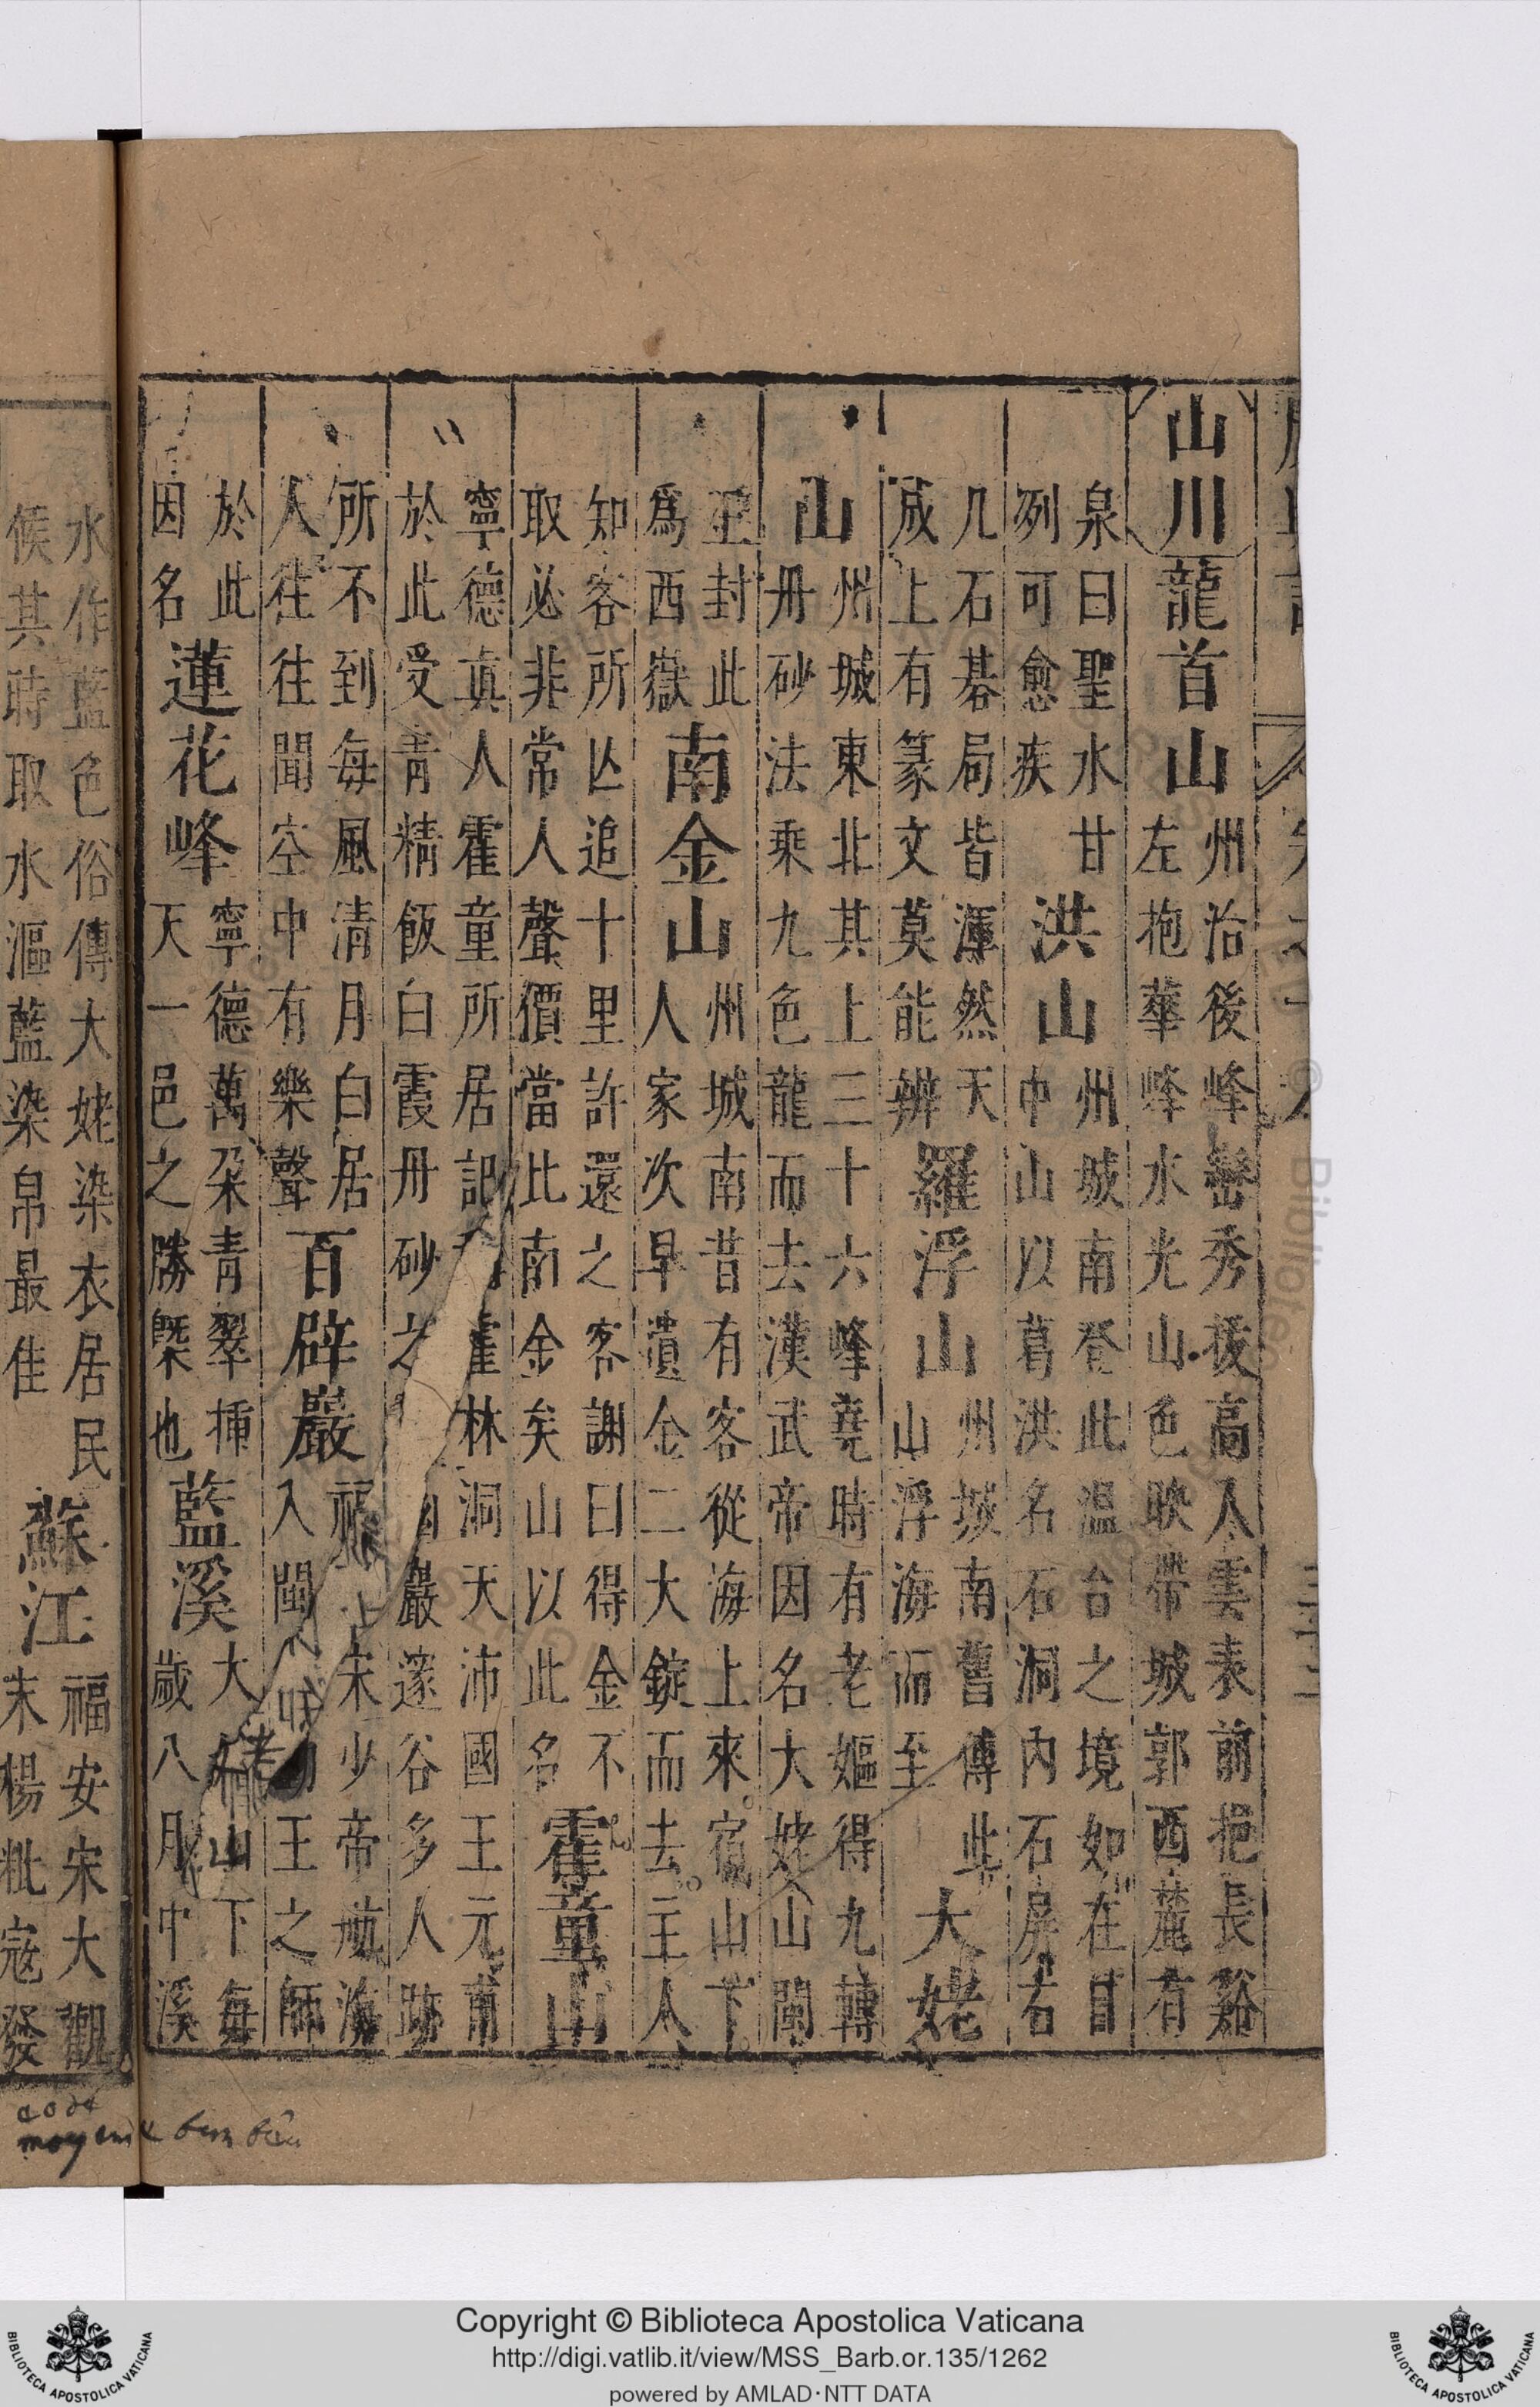 山川
龍首山
州治後峰巒秀拔高入雲表前挹長谿
左抱華峰水光山色映帶城郭西麓有
泉曰聖水甘
冽可愈疾
洪山
州城南登此温台之境如在目
中山以葛洪名石洞内石屏右
几石碁局皆渾然天
成上有篆文莫能辨
羅浮山
州城南舊傳此
山浮海而至
大姥
山
州城東北其上三十六峰堯時有老嫗得九轉
丹砂法乘九色龍而去漢武帝因名大姥山閩
王封此
爲西嶽
南金山
州城南昔有客從海上來宿山下
人家次早遺金二大錠而去主人
知客所亡追十里許還之客謝曰得金不
取必非常人聲價當此南金矣山以此名
霍童山
寧德真人霍童所居記霍林洞天沛國王元甫
於此受青精飯白霞丹砂之巖邃谷多人跡
所不到每風清月白居
人往往聞空中有樂聲
百辟巖
福上宋少帝航海
入閩王之師
於此
因名
蓮花峰
寧德萬朶青翠揷
天一邑之勝槩也
藍溪
大姥山下每
歲八月中溪
水作藍色俗傳大姥染衣居民
候其時取水漚藍染帛最佳
蘇江
福安宋大觀
末楊寇發
Copyright © Biblioteca Apostolica Vaticana
http://digi.vatlib.it/view/MSS_Barb.or.135/1262
powered by AMLAD·NTT DATA
BIBLIOTECA APOSTOLICA VATICANA
BIBLIOTECA APOSTOLICA VATICANA